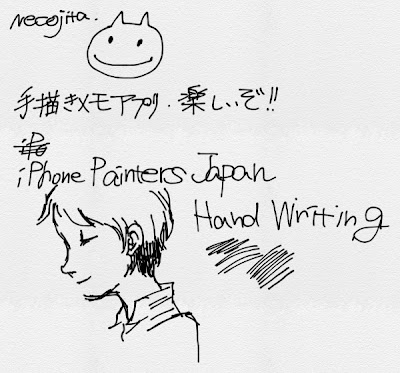 necojita.
手描きメモアプリ．楽しいぞ!!
iPhone Painters Japan
Hand Writing